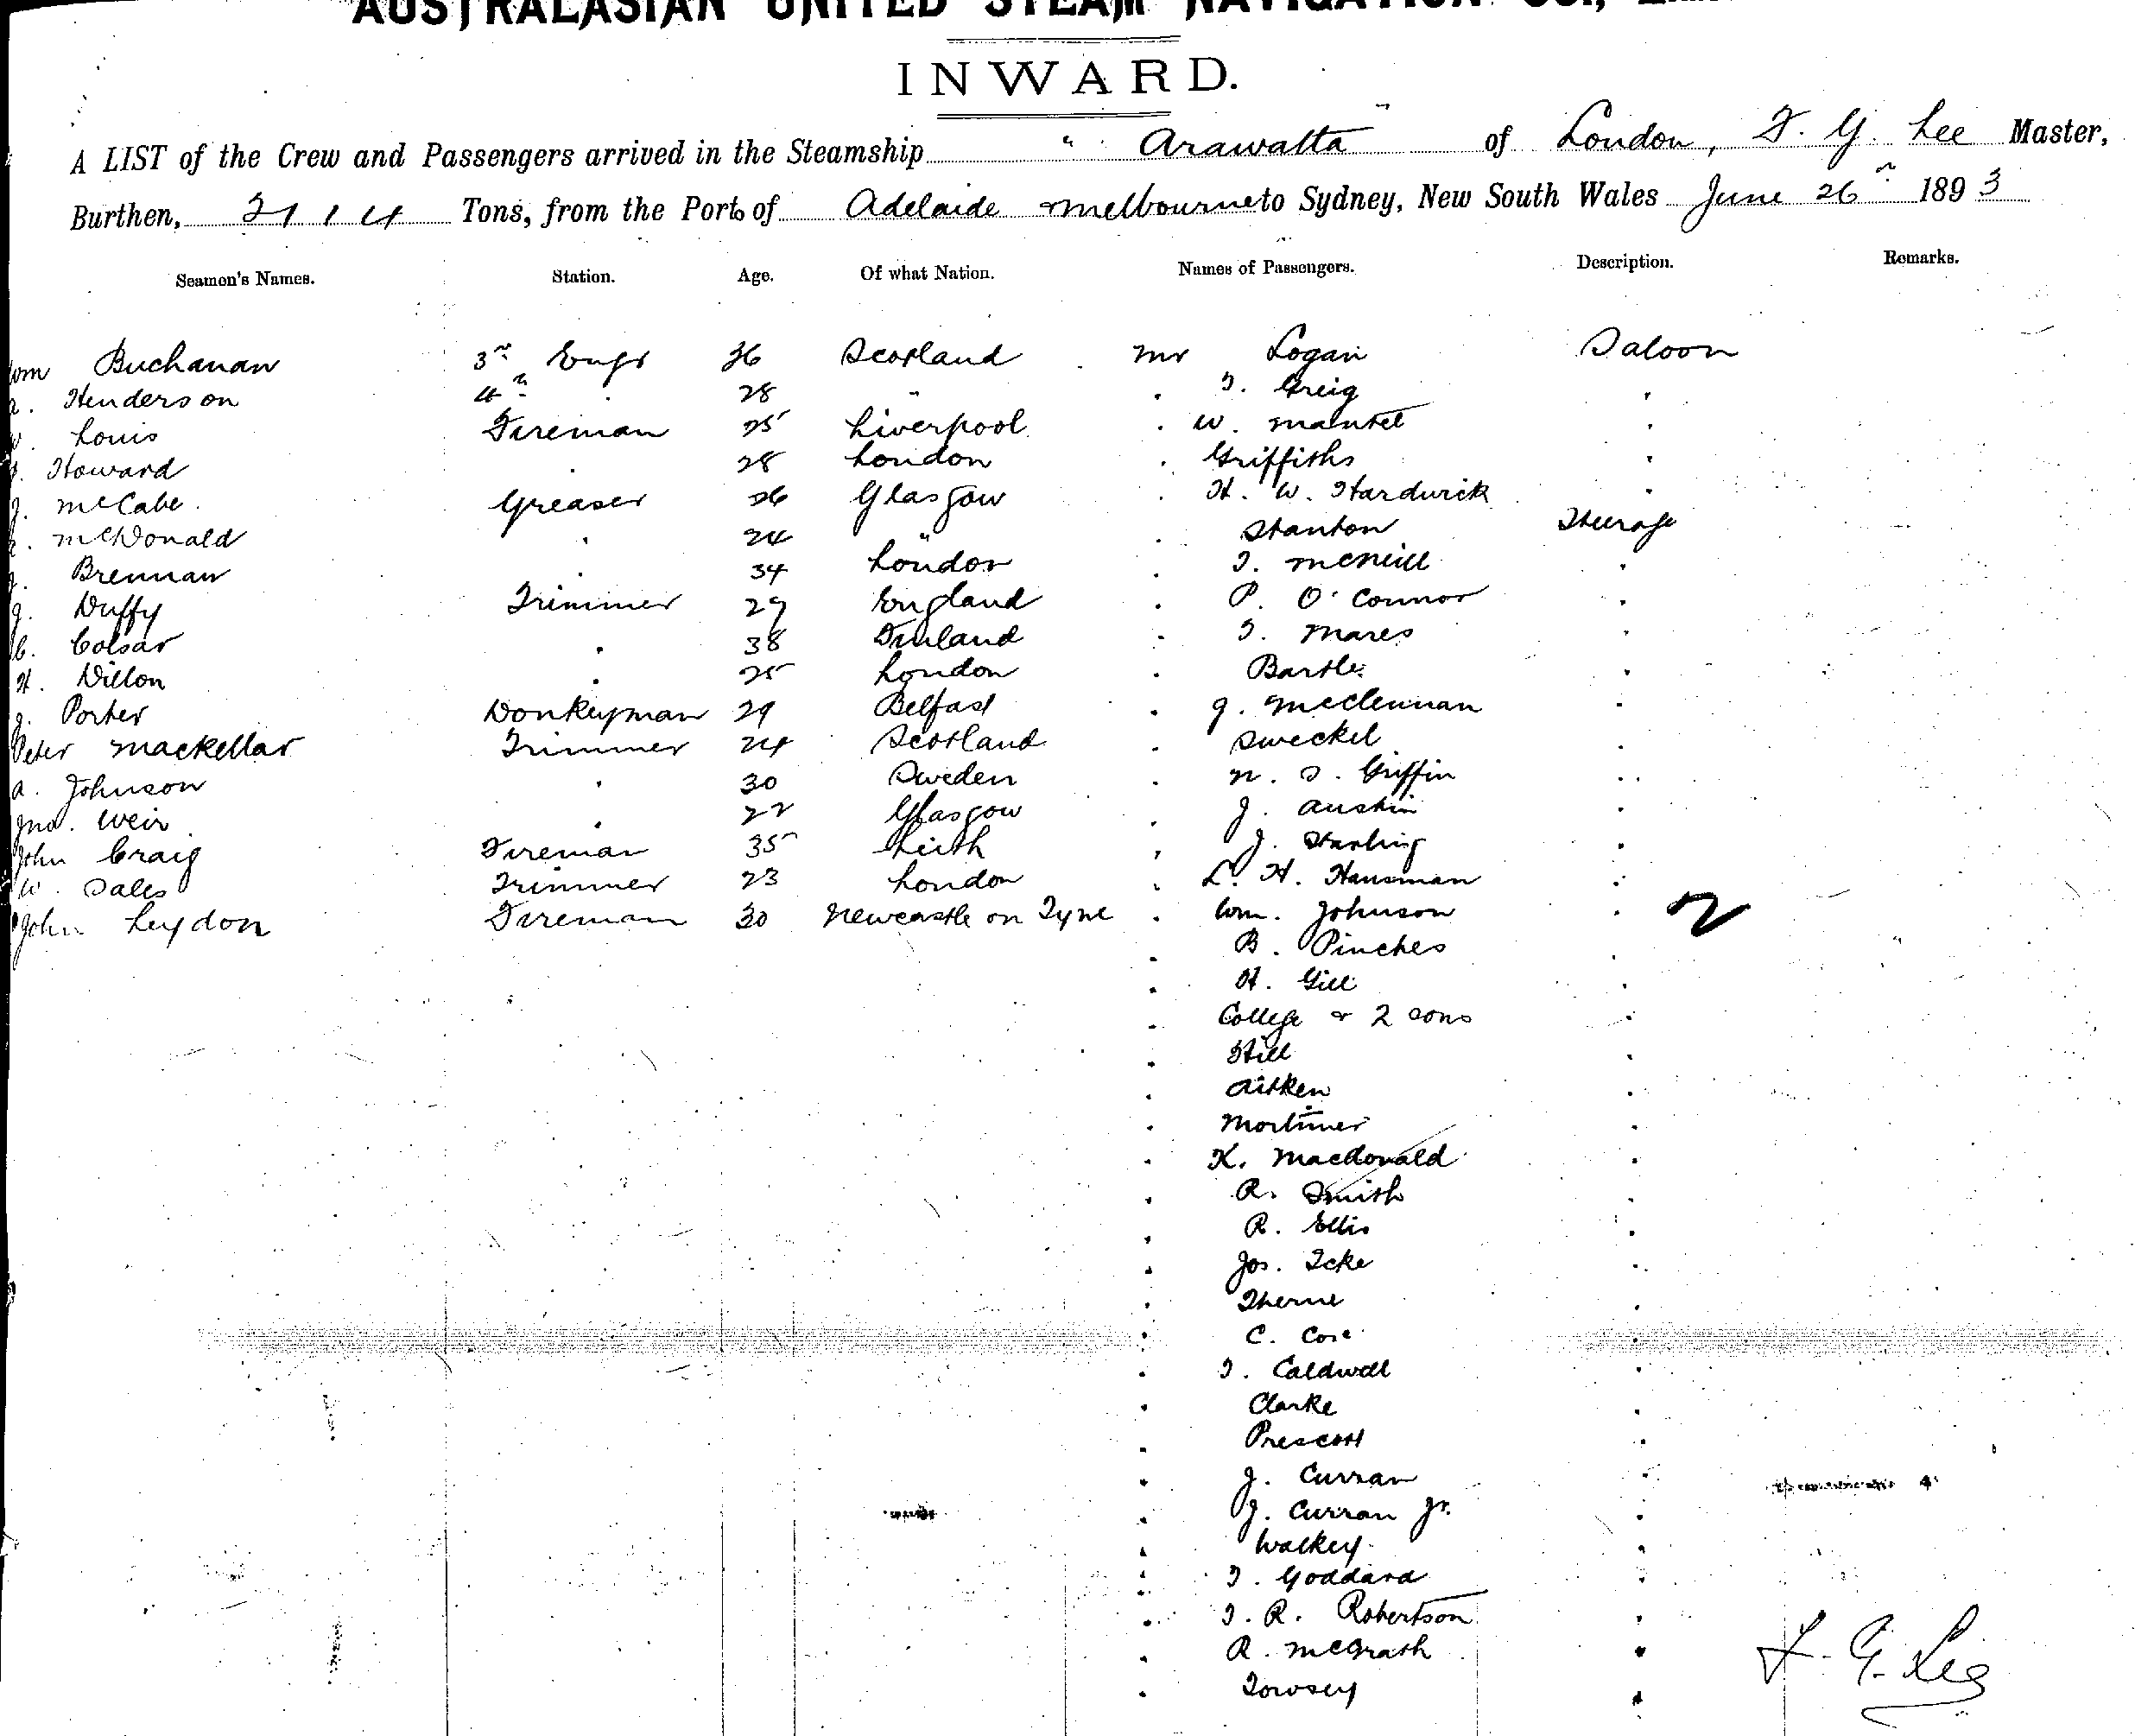 AUSTRALASIAN UNITED STEAM NAVIGATION CO.,
INWARD.
A LIST of the Crew and Passengers arrived in the Steamship " Arawatta " of London, F. G. Lee Master,
Burthen, 2114 Tons, from the Port of Adelaide Melbourne to Sydney, New South Wales June 26th 1893
Seamen's Names. Station. Age. Of what Nation. Names of Passengers. Description. Remarks.
Wm Buchanan 3rd Engr 36 Scotland Mr Logan Saloon
Henderson 4th " 28 " " T. Greig "
Louis Fireman 25 Liverpool " W. Mantel "
Howard " 28 London " Griffiths "
J. McCabe Greaser 26 Glasgow " H. W. Hardwick "
McDonald " 24 " " Stanton Steerage
Brennan " 34 London " T. McNeill "
J. Duffy Trimmer 29 England " P. O'Connor "
C. Colsar " 38 Finland " T. Mares "
H. Dillon " 25 London " Bartle "
J. Porter Donkeyman 29 Belfast " J. McClennan "
Peter Mackellar Trimmer 24 Scotland " Sweckel "
A. Johnson " 30 Sweden " N. S. Griffin "
Jno. Weir " 22 Glasgow " J. Austin "
John Craig Fireman 35 Leith " J. Starling "
W. Sales Trimmer 23 London " L. H. Hausman "
John Leydon Fireman 30 Newcastle on Tyne " Wm. Johnson "
" B. Pinches "
" H. Gill "
" College & 2 sons "
" Still "
" Aitken "
" Mortimer "
" K. Macdonald "
" R. Smith "
" R. Ellis "
" Jos. Icke "
" Therne "
" C. Core "
" T. Caldwell "
" Clarke "
" Prescott "
" J. Curran "
" J. Curran Jr. "
" Walkey "
" T. Goddard "
" T. R. Robertson "
" R. McGrath "
" Towsey "
F. G. Lee